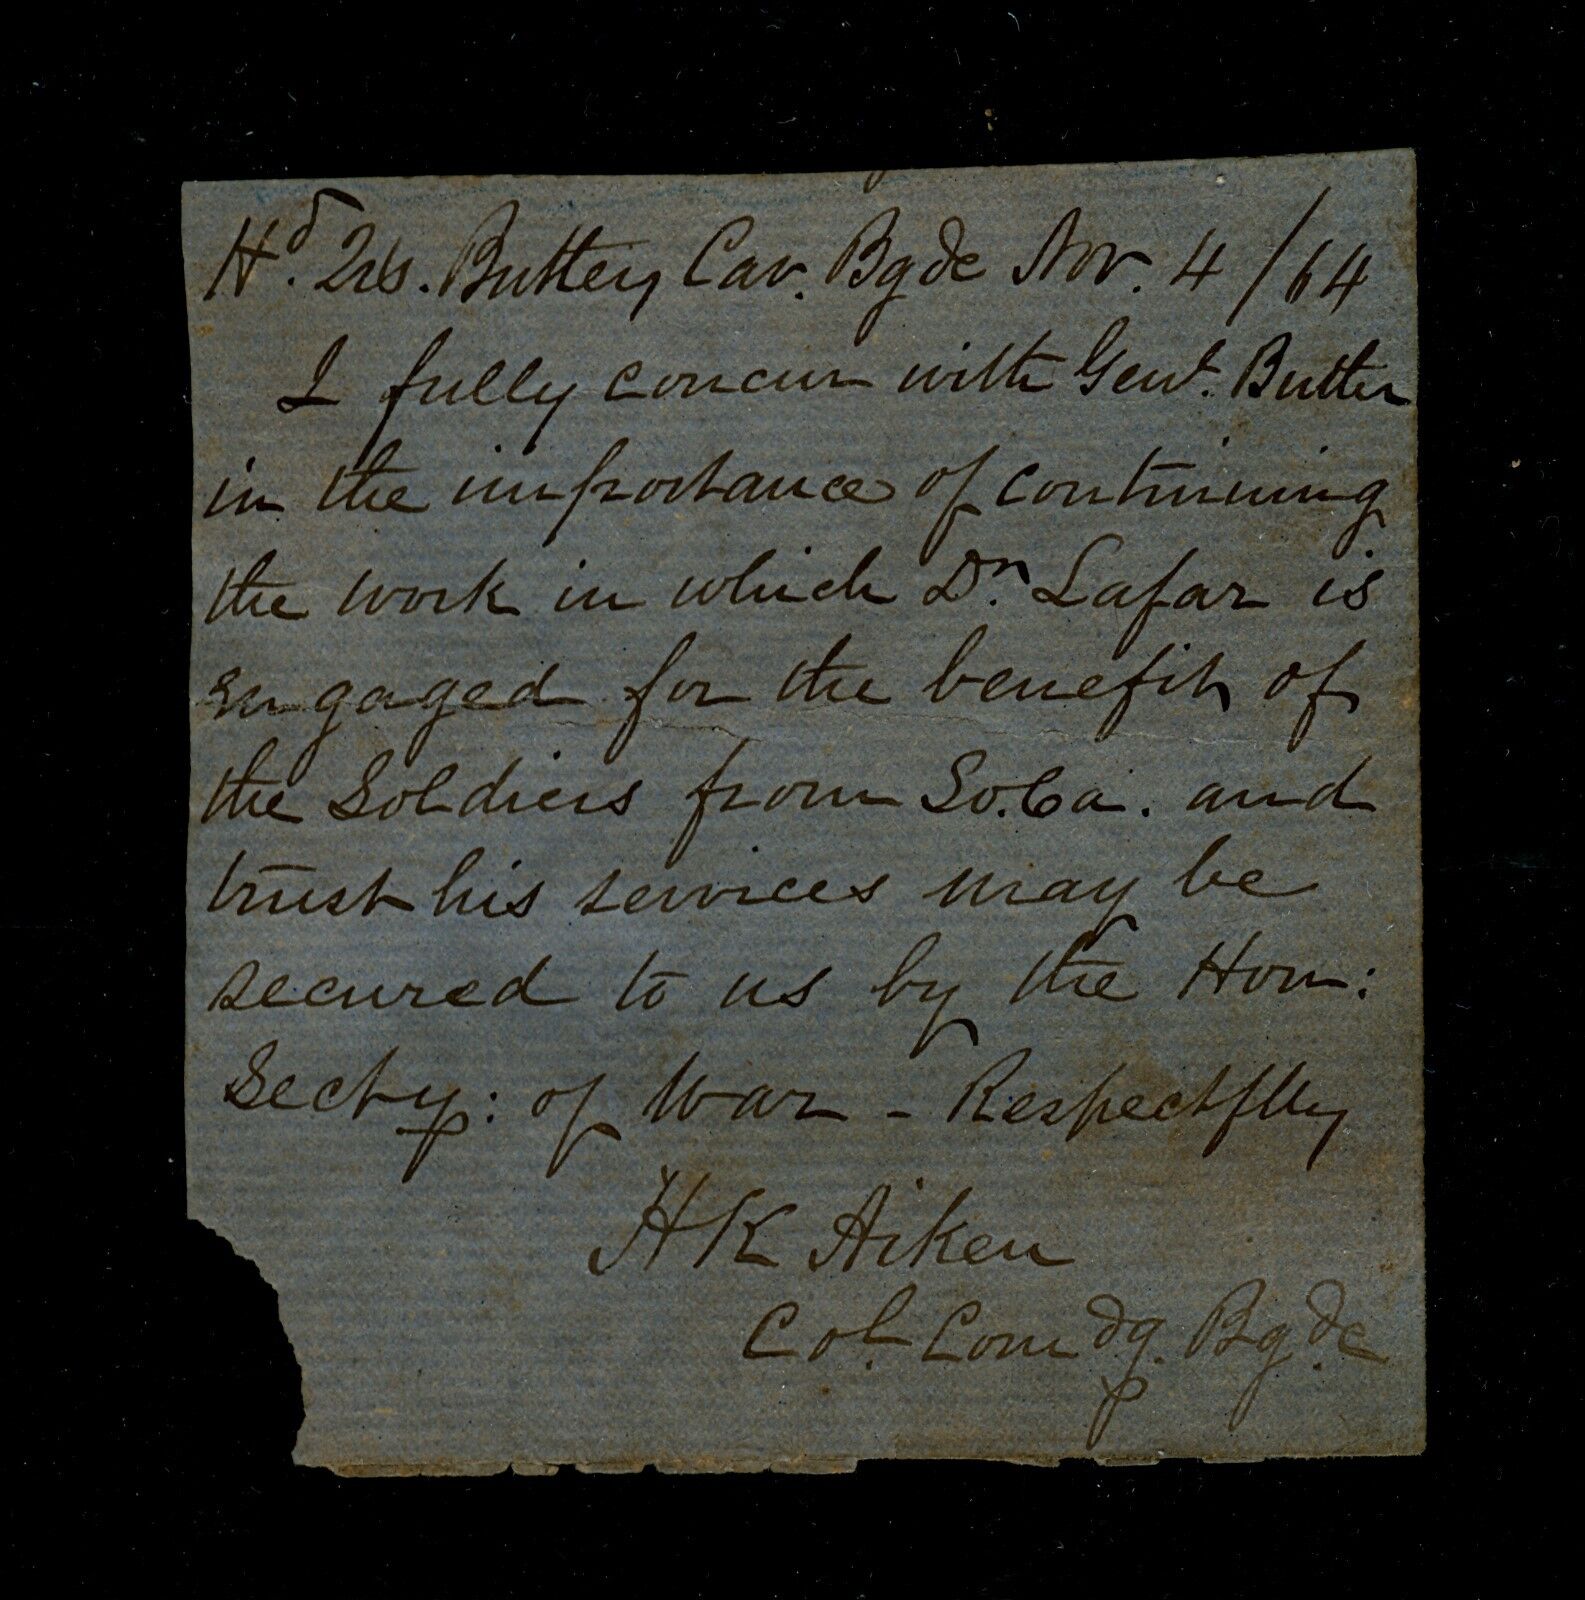 Hd. Qrs. Butlers Cav. Bgde Nov. 4/64
I fully concur with Genl. Butler
in the importance of continuing
the work in which Dr. Lafar is
engaged for the benefit of
the Soldiers from So. Ca. and
trust his services may be
secured to us by the Hon:
Secty: of War - Respectflly
H K Aiken
Col. Comdg. Bgde